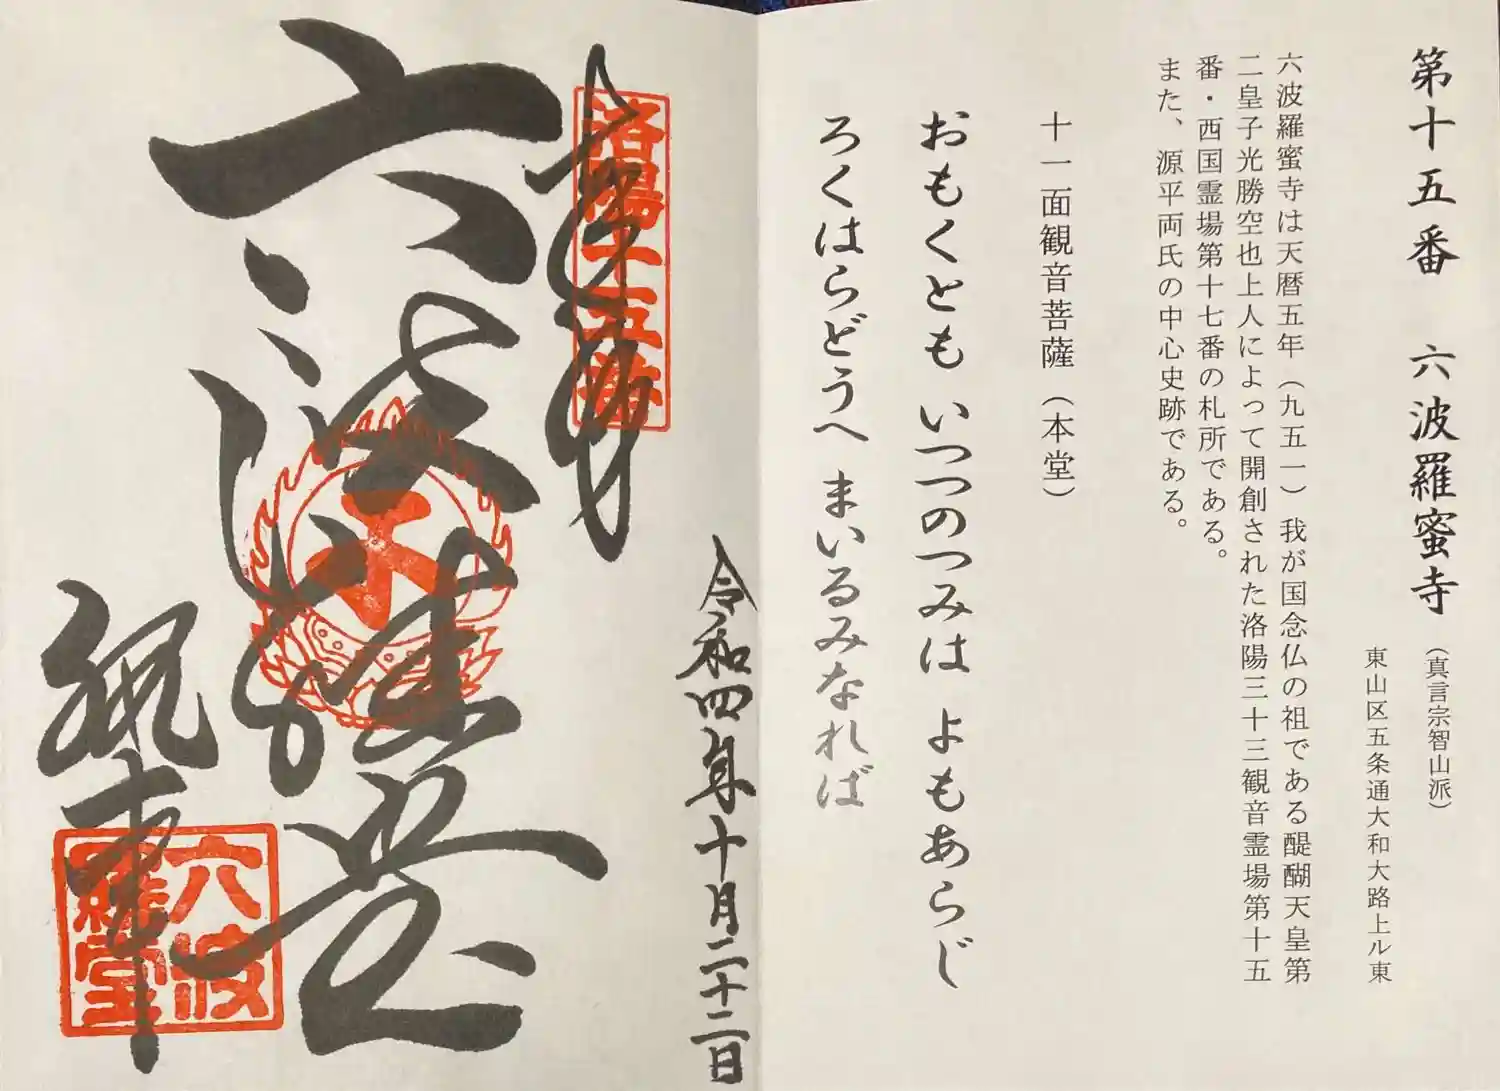 第十五番　六波羅蜜寺（真言宗智山派）
東山区五条通大和大路上ル東
六波羅蜜寺は天暦五年（九五一）我が国念仏の祖である醍醐天皇第
二皇子光勝空也上人によって開創された洛陽三十三観音霊場第十五
番・西国霊場第十七番の札所である。
また、源平両氏の中心史跡である。
十一面観音菩薩（本堂）
おもくとも いつつのつみは よもあらじ
ろくはらどうへ まいるみなれば
令和四年十月二十二日
奉拝
洛陽十五番
六波羅堂
六波羅堂